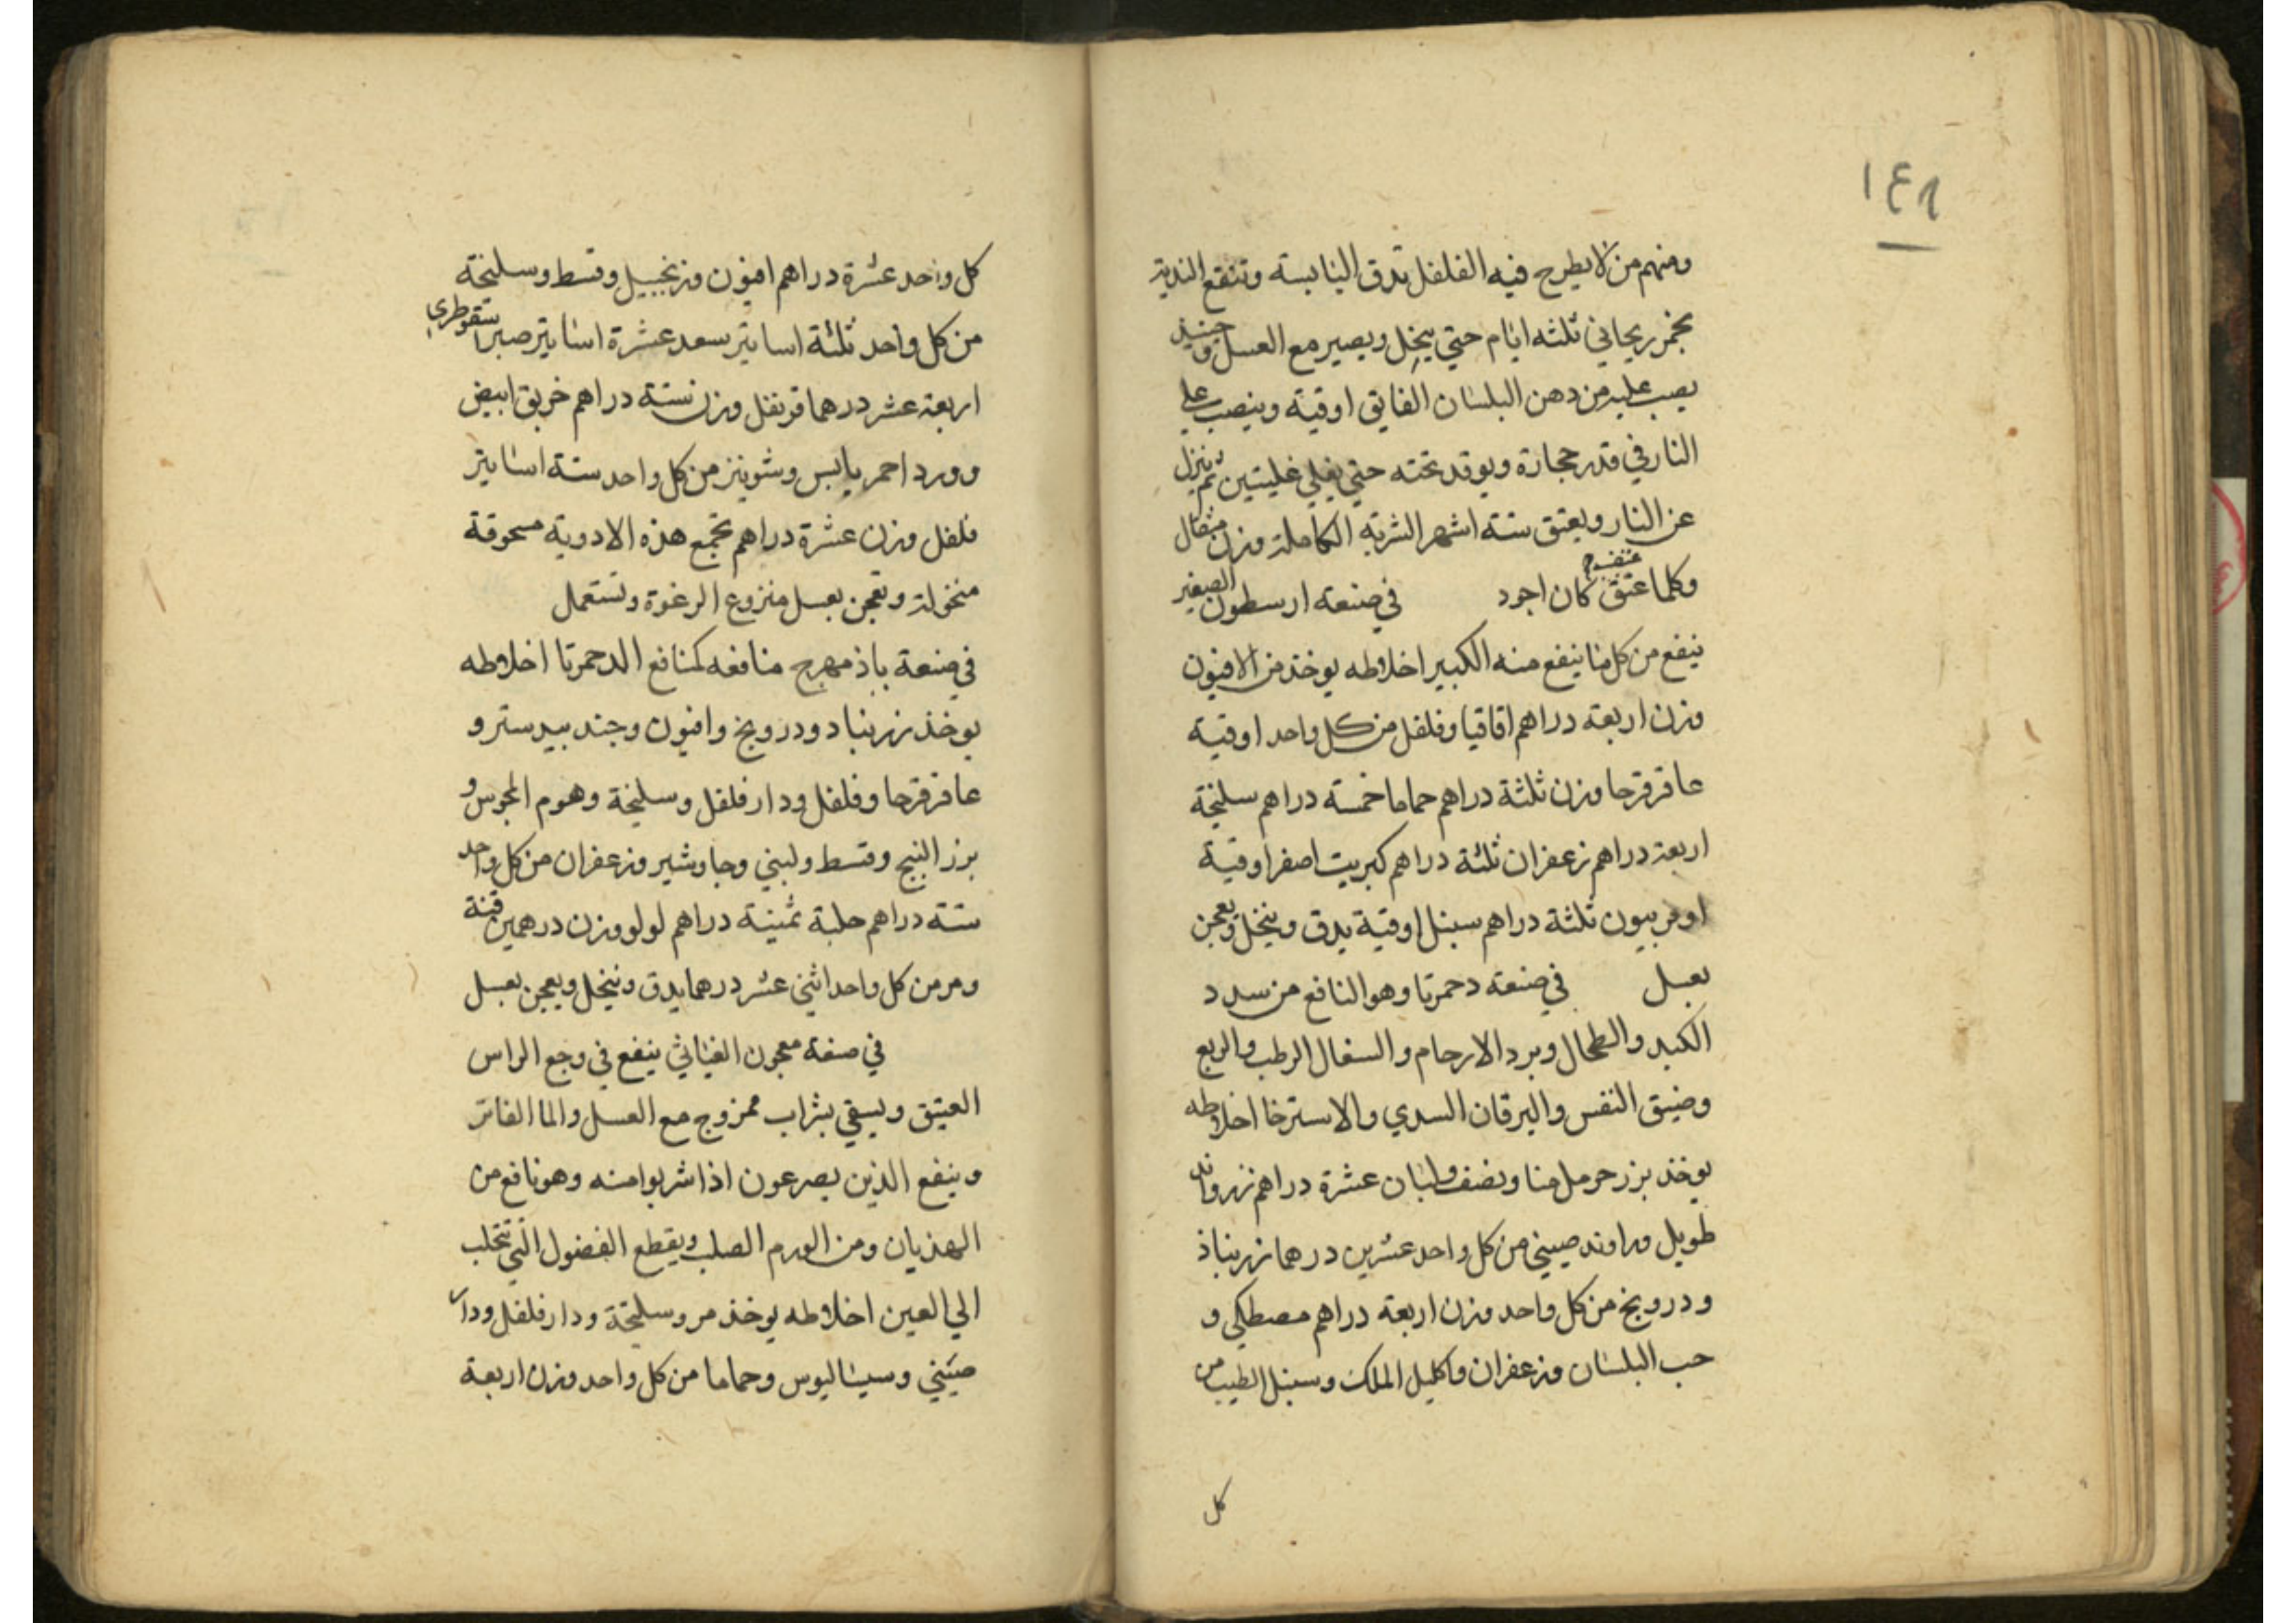 ١٤٨
ومنهم من لا يطرح فيه الفلفل تدق اليابسة وتنقع الندية
بخمر ريحاني ثلثه ايام حتي ينحل ويصير مع العسل وحينيذ
يصب عليه من دهن البلسان الفايق اوقية وينصب علي
النار في قدر حجارة ويوقد تحته حتي يغلي غليتين ثم ينزل
عن النار ويعتق ستة اشهر الشربة الكاملة وزن مثقال
وكلما عتق كان اجود في صنعة ارسطون الصغير
ينفع من كل ما ينفع منه الكبير اخلاطه يوخذ من الافيون
وزن اربعة دراهم اقاقيا وفلفل من كل واحد اوقية
عاقرقرحا وزن ثلثة دراهم حماما خمسة دراهم سليخة
اربعة دراهم زعفران ثلثة دراهم كبريت اصفر اوقية
اوفربيون ثلثة دراهم سنبل اوقية يدق وينخل ويعجن
بعسل في صنعة دحمرتا وهو النافع من سدد
الكبد والطحال وبرد الارحام والسعال الرطب والربع
وضيق النفس واليرقان السدي والاسترخا اخلاطه
يوخذ بزر حرمل منا ونصف ولبان عشرة دراهم زراوند
طويل وراوند صيني من كل واحد عشرين درهما زرنباذ
ودرونج من كل واحد وزن اربعة دراهم مصطكي و
حب البلسان وزعفران واكليل الملك وسنبل الطيب من
كل
كل واحد عشرة دراهم افيون وزنجبيل وقسط وسليخة
من كل واحد ثلثة اساتير سعد عشرة اساتير صبر اسقوطري
اربعة عشر درهما قرنفل وزن ستة دراهم خربق ابيض
وورد احمر يابس وشونيز من كل واحد ستة اساتير
فلفل وزن عشرة دراهم تجمع هذه الادوية مسحوقة
منخولة وتعجن بعسل منزوع الرغوة وتستعمل
في صنعة باذمهرج منافعه كمنافع الدحمرتا اخلاطه
يوخذ زرنباد ودرونج وافيون وجندبيدستر و
عاقرقرحا وفلفل ودارفلفل وسليخة وهوم المجوس و
بزر البنج وقسط ولبني وجاوشير وزعفران من كل واحد
ستة دراهم حلبة ثمنية دراهم لولو وزن درهمين قنة
ومر من كل واحد اثني عشر درهما يدق وينخل ويعجن بعسل
في صفة معجون الغياثي ينفع في وجع الراس
العتيق ويسقي بشراب ممزوج مع العسل والما الفاتر
وينفع الذين يصرعون اذا شربوا منه وهو نافع من
الهذيان ومن الورم الصلب ويقطع الفضول التي تتحلب
الي العين اخلاطه يوخذ مر وسليخة ودارفلفل ودار
صيني وسيساليوس وحماما من كل واحد وزن اربعة